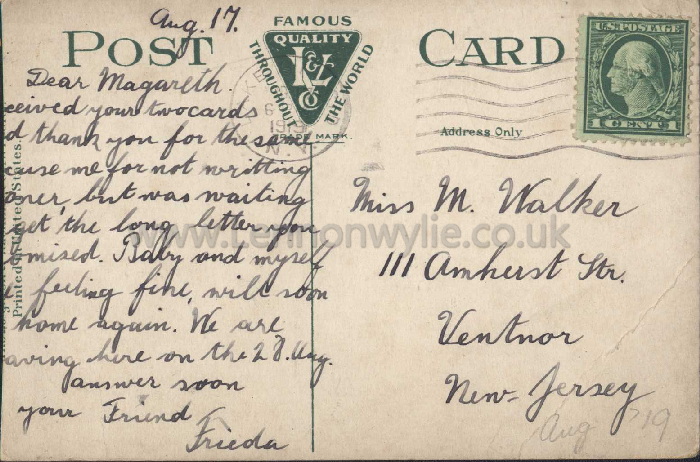 Aug. 17.
POST CARD
FAMOUS
QUALITY
THROUGHOUT THE WORLD
TRADE MARK.
Address Only
U.S. POSTAGE
1 CENT 1
1919
N.
Printed in United States.
Dear Magareth.
ceived your two cards
d thank you for the same
cuse me for not writting
oner, but was waiting
get the long letter you
omised. Baby and myself
feeling fine, will soon
home again. We are
aving here on the 28. Aug.
answer soon
your Friend
Frieda
Miss M. Walker
111 Amherst Str.
Ventnor
New-Jersey
Aug '19
www.Lennonwylie.co.uk